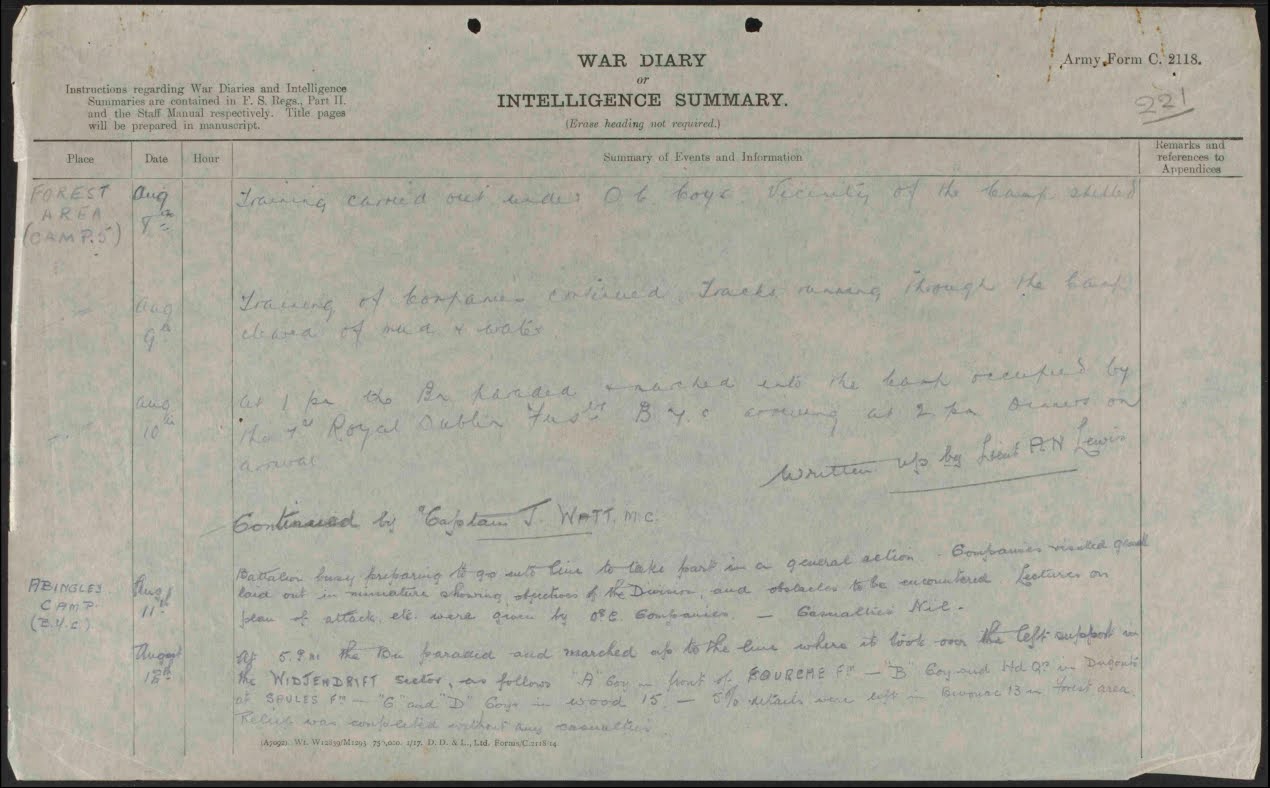 WAR DIARY
or
INTELLIGENCE SUMMARY.
(Erase heading not required.)
Army Form C. 2118.
221
Instructions regarding War Diaries and Intelligence
Summaries are contained in F. S. Regs., Part II.
and the Staff Manual respectively. Title pages
will be prepared in manuscript.
Place
Date
Hour
Summary of Events and Information
Remarks and
references to
Appendices
FOREST
AREA
(CAMP. 5)
Aug
8th
Training carried out under O C Coys. Vicinity of the Camp shelled
Aug
9th
Training of Companies continued. Tracks running through the Camp
cleared of mud & water
Aug
10th
At 1 pm the Bn paraded & marched into the Camp occupied by
the Royal Dublin Fusrs B.y.c arriving at 2 pm Dinners on
arrival
Written up by Lieut A N Lewis
Continued by Captain J. WATT. M.C.
ABINGLEY
CAMP.
Aug
11th
Battalion busy preparing to go into line to take part in a general action. Companies visited
laid out in miniature showing objectives of the Division, and obstacles to be encountered. Lectures on
plan of attack, etc. were given by Companies. — Casualties Nil.
August
At 5.P.M. the Bn paraded and marched up to the line where it took over the left support in
the WIDJENDRIFT sector, as follows "A" Coy in front of Fm — "B" Coy and Hd Qrs in Dugouts
at SAULES Fm — "C" and "D" Coys in wood 15 — 5% details were left in Bivouac 13 in forest area.
Relief was completed without any casualties.
(A7092). Wt. W12839/M1293 75 ,000. 1/17. D. D. & L., Ltd. Forms/C.2118 14